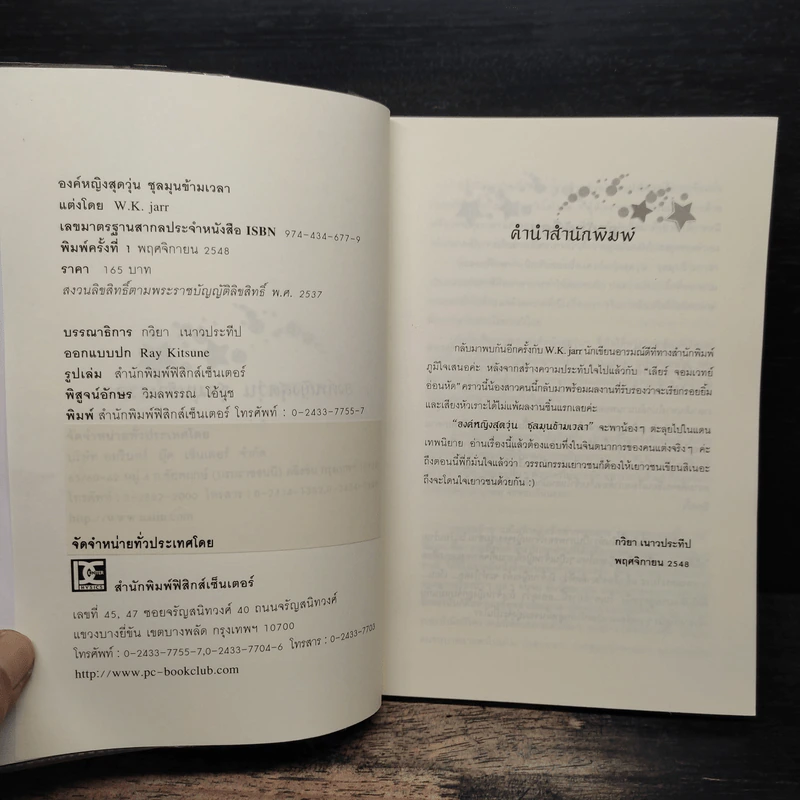 องค์หญิงสุดวุ่น ซุลมุนข้ามเวลา
แต่งโดย W.K. jarr
เลขมาตรฐานสากลประจำหนังสือ ISBN 974-434-677-9
พิมพ์ครั้งที่ 1 พฤศจิกายน 2548
ราคา 165 บาท
สงวนลิขสิทธิ์ตามพระราชบัญญัติลิขสิทธิ์ พ.ศ. 2537
บรรณาธิการ กวิยา เนาวประทีป
ออกแบบปก Ray Kitsune
รูปเล่ม สำนักพิมพ์ฟิสิกส์เซ็นเตอร์
พิสูจน์อักษร วิมลพรรณ โอ้นุช
พิมพ์ สำนักพิมพ์ฟิสิกส์เซ็นเตอร์ โทรศัพท์ : 0-2433-7755-7
จัดจำหน่ายทั่วประเทศโดย
สำนักพิมพ์ฟิสิกส์เซ็นเตอร์
เลขที่ 45, 47 ซอยจรัญสนิทวงศ์ 40 ถนนจรัญสนิทวงศ์
แขวงบางยี่ขัน เขตบางพลัด กรุงเทพฯ 10700
โทรศัพท์ : 0-2433-7755-7,0-2433-7704-6 โทรสาร : 0-2433-7703
http://www.pc-bookclub.com
คำนำสำนักพิมพ์
กลับมาพบกันอีกครั้งกับ W.K. jarr นักเขียนอารมณ์ดีที่ทางสำนักพิมพ์
ภูมิใจเสนอค่ะ หลังจากสร้างความประทับใจไปแล้วกับ "เลียร์ จอมเวทย์
อ่อนหัด" คราวนี้น้องสาวคนนี้กลับมาพร้อมผลงานที่รับรองว่าจะเรียกรอยยิ้ม
และเสียงหัวเราะได้ไม่แพ้ผลงานชิ้นแรกเลยค่ะ
"องค์หญิงสุดวุ่น ซุลมุนข้ามเวลา" จะพาน้องๆ ตะลุยไปในแดน
เทพนิยาย อ่านเรื่องนี้แล้วต้องแอบทึ่งในจินตนาการของคนแต่งจริงๆ ค่ะ
ถึงตอนนี้พี่ก็มั่นใจแล้วว่า วรรณกรรมเยาวชนก็ต้องให้เยาวชนเขียนสิเนอะ
ถึงจะโดนใจเยาวชนด้วยกัน :)
กวิยา เนาวประทีป
พฤศจิกายน 2548